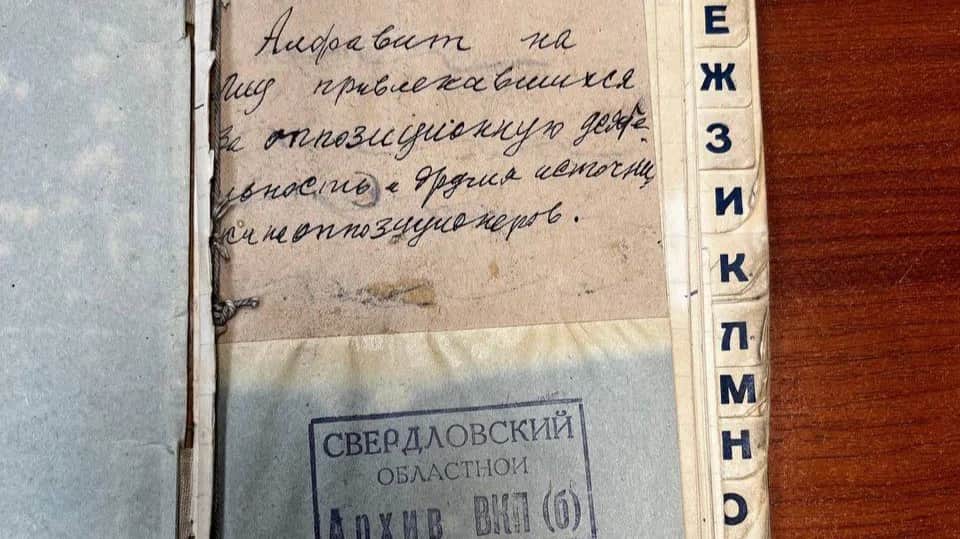 Алфавит на
лиц привлекавшихся
за оппозиционную деяте
льность и другия источни
ки на оппозиционеров.
СВЕРДЛОВСКИЙ
ОБЛАСТНОЙ
Архив ВКП (б)
Е
Ж
З
И
К
Л
М
Н
О